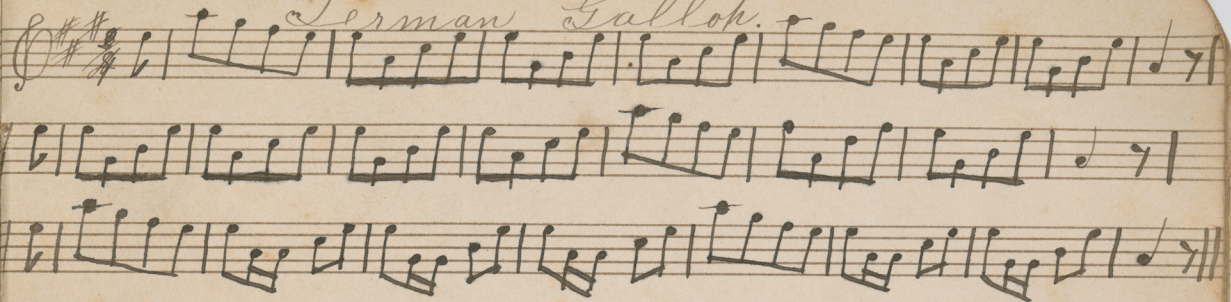 German Galloh.